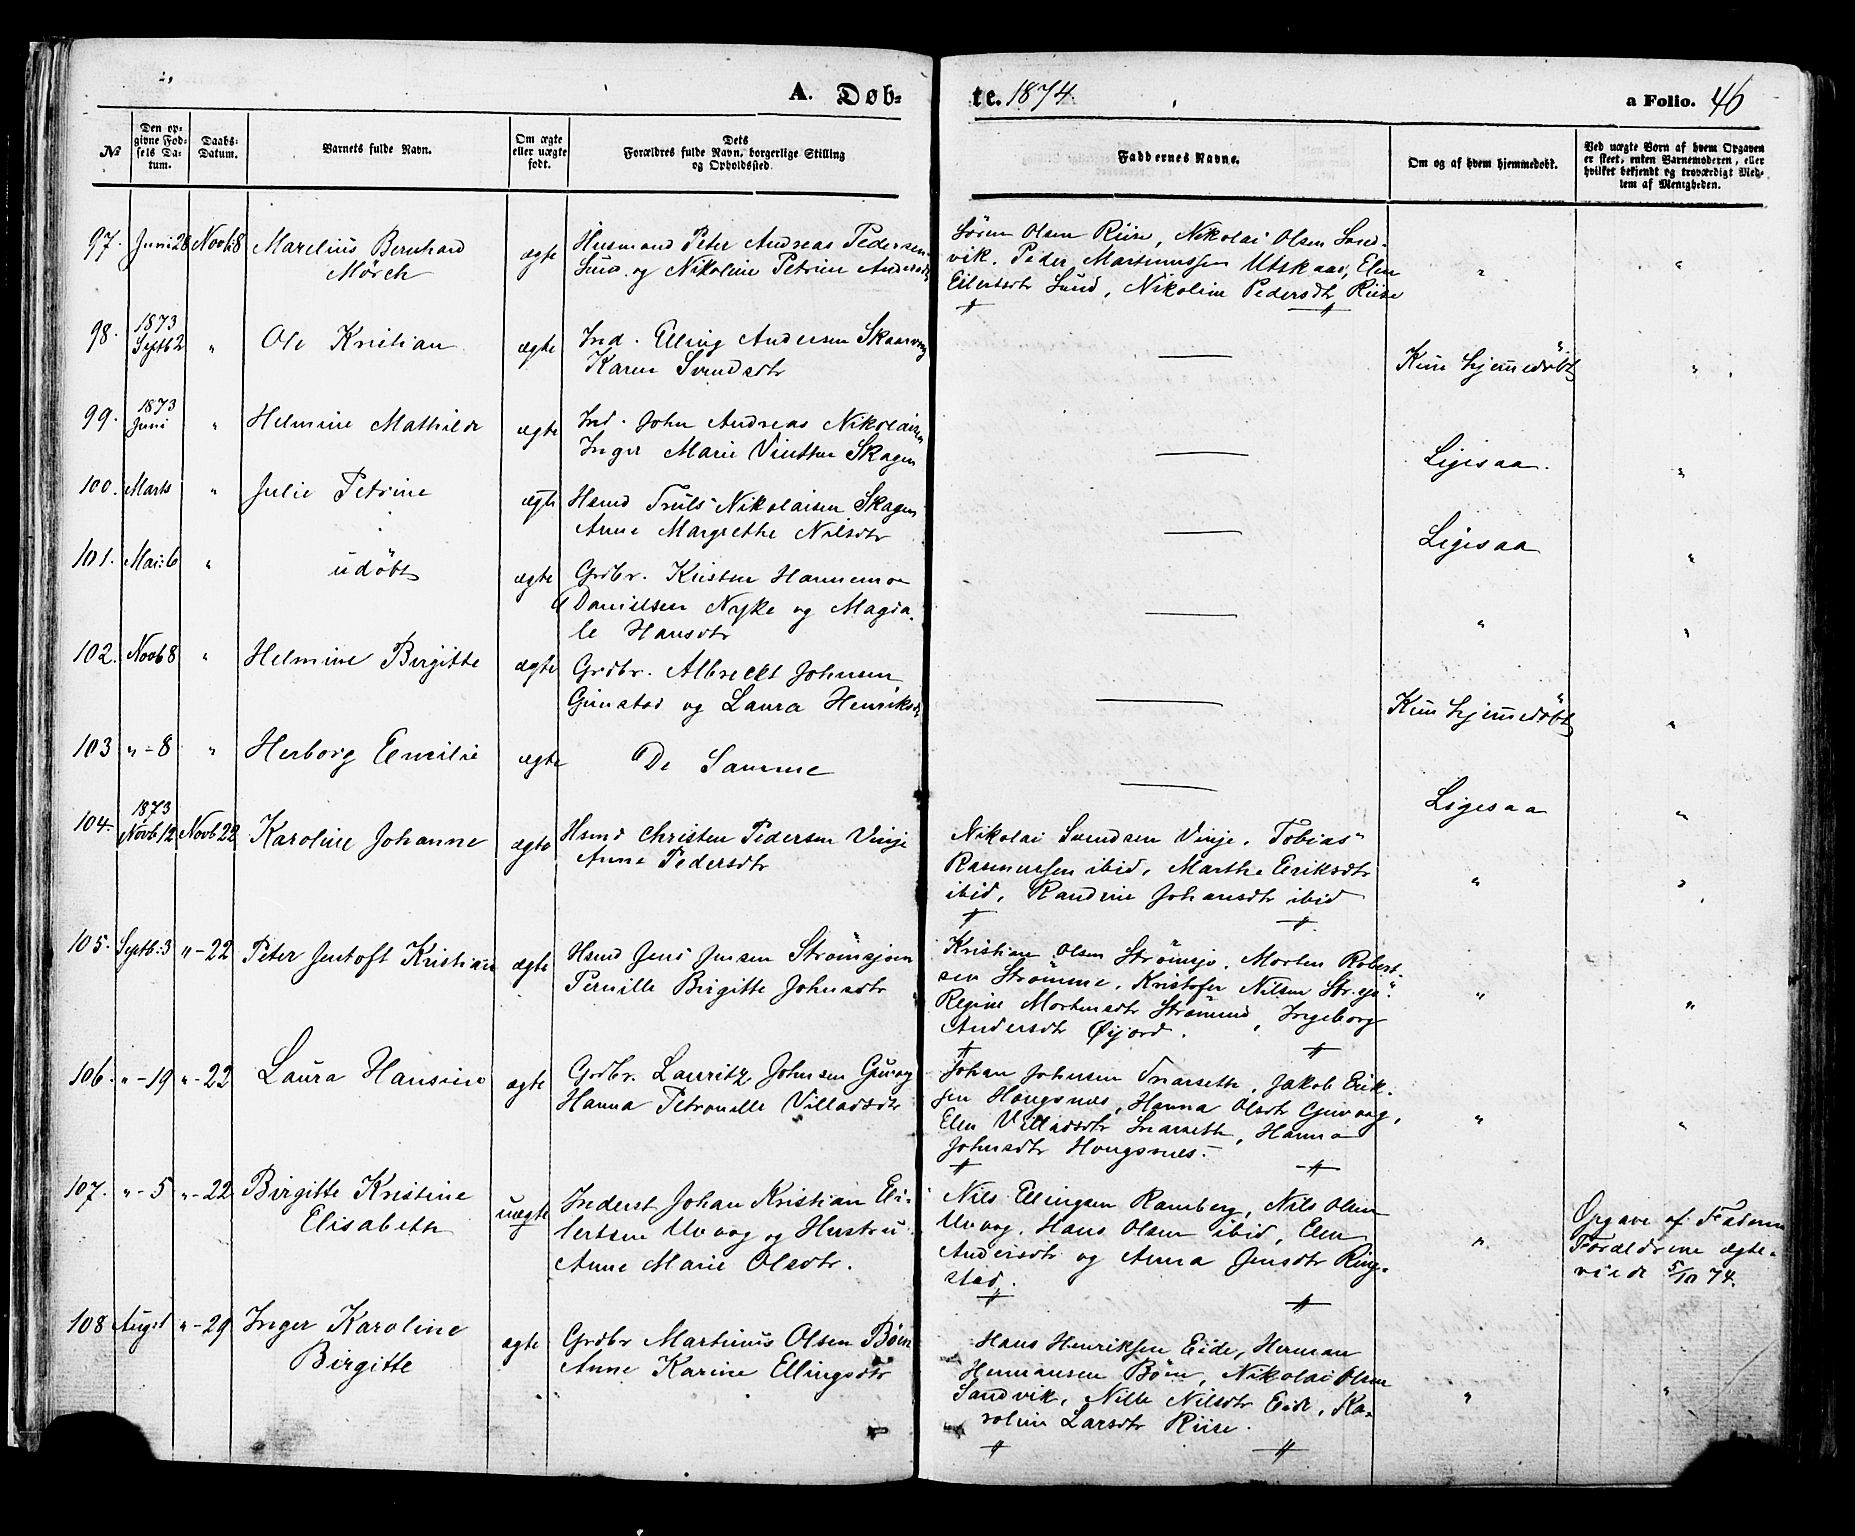 A. Døb-
te. 1874.
a Folio. 46
№
Den op-
givne Fød-
sels Da-
tum.
Daabs-
Datum.
Barnets fulde Navn.
Om ægte
eller uægte
født.
Dets
Forældres fulde Navn, borgerlige Stilling
og Opholdssted.
Faddernes Navne.
Om og af hvem hjemmedøbt.
Ved uægte Børn af hvem Opgaven
er skeet, enten Barnemoderen, eller
hvilket bekjendt og troværdigt Med-
lem af Menigheden.
97. Juni 28 Novb 8 Marelius Bernhard
Mörch
ægte
Husmand Peter Andreas Pedersen
Lund og Nikoline Petrine Andersdtr
Sören Olsen Riise, Nikolai Olsen Sand-
vik, Peder Martinussen Utskaar, Elen
Eilertsdtr Lund, Nikoline Pedersdtr Riise
"
"
98. 1873
Septb 2 " Ole Kristian
ægte
Ind. Elling Andersen Skaarvaag
Karen Svendsdtr
—
Kun hjemedöbt
"
99. 1873
Juni " Helmine Mathilde
ægte
Ind. John Andreas Nikolaisen
Inger Marie Vinther Skagen
—
Ligesaa.
"
100. Marts " Julie Petrine
ægte
Hsmd Truls Nikolaisen Skagen
Anne Margrethe Nilsdtr
—
Ligesaa
"
101. Mai: 6 " udöbt
ægte
Grdbr. Kristen Hannemoe
Danielsen Nyke og Magda-
le Hansdtr
—
"
"
102. Novb 8 " Helmine Birgitte
ægte
Grdbr. Albreckt Johnsen
Guustad og Laura Henriksdtr
—
Kun hjemedöbt
"
103 " - 8 " Herborg Emilie
ægte
De Samme
—
Ligesaa
"
104. 1873
Novb 12 Novb 22 Karoline Johanne
ægte
Hsmd Christen Pedersen Vinje
Anne Pedersdtr
Nikolai Svendsen Vinje, Tobias
Rasmussen ibid, Marthe Eriksdtr
ibid, Randine Johansdtr ibid
"
"
105. Septb. 3 " - 22 Peter Jentoft Kristian
ægte
Hsmd Jens Jensen Strömsjøen
Pernille Birgitte Johnsdtr
Kristian Olsen Strömsjø, Morten Robert-
sen Strömme, Kristofer Nilsen Str.sjø.
Regine Mortensdtr, Ingeborg
Andersdtr Øijord.
"
"
106. " - 19 " - 22 Laura Hansine
ægte
Grdbr. Lauritz Johnsen Guvaag
Hanna Petronelle Villadsdtr
Johan Johnsen Snarseth, Jakob Erik-
sen Hougsnæs, Hanna Olsdtr Guvaag,
Elen Villadsdtr Snarseth, Hanna
Johnsdtr Hougsnes.
"
"
107. " - 5 " - 22 Birgitte Kristine
Elisabeth
uægte
Inderst Johan Kristian Ei-
lertsen Uvaag og Hustru
Anne Marie Olsdtr.
Nils Ellingsen Ramberg, Nils Olsen
Uvaag, Hans Olsen ibid, Elen
Andersdtr og Anna Jensdtr Ring-
stad.
"
Opgave af Faderen
Forældrene ægte-
viede 5/10 74.
108 Augst " - 29 Inger Karoline
Birgitte
ægte
Grdbr Martinus Olsen Bøen
Anne Karine Ellingsdtr
Hans Henriksen Eide, Herman
Hermansen Bøen, Nikolai Olsen
Sandvik, Nille Nilsdtr Eide, Ka-
roline Larsdtr Riise.
"
"